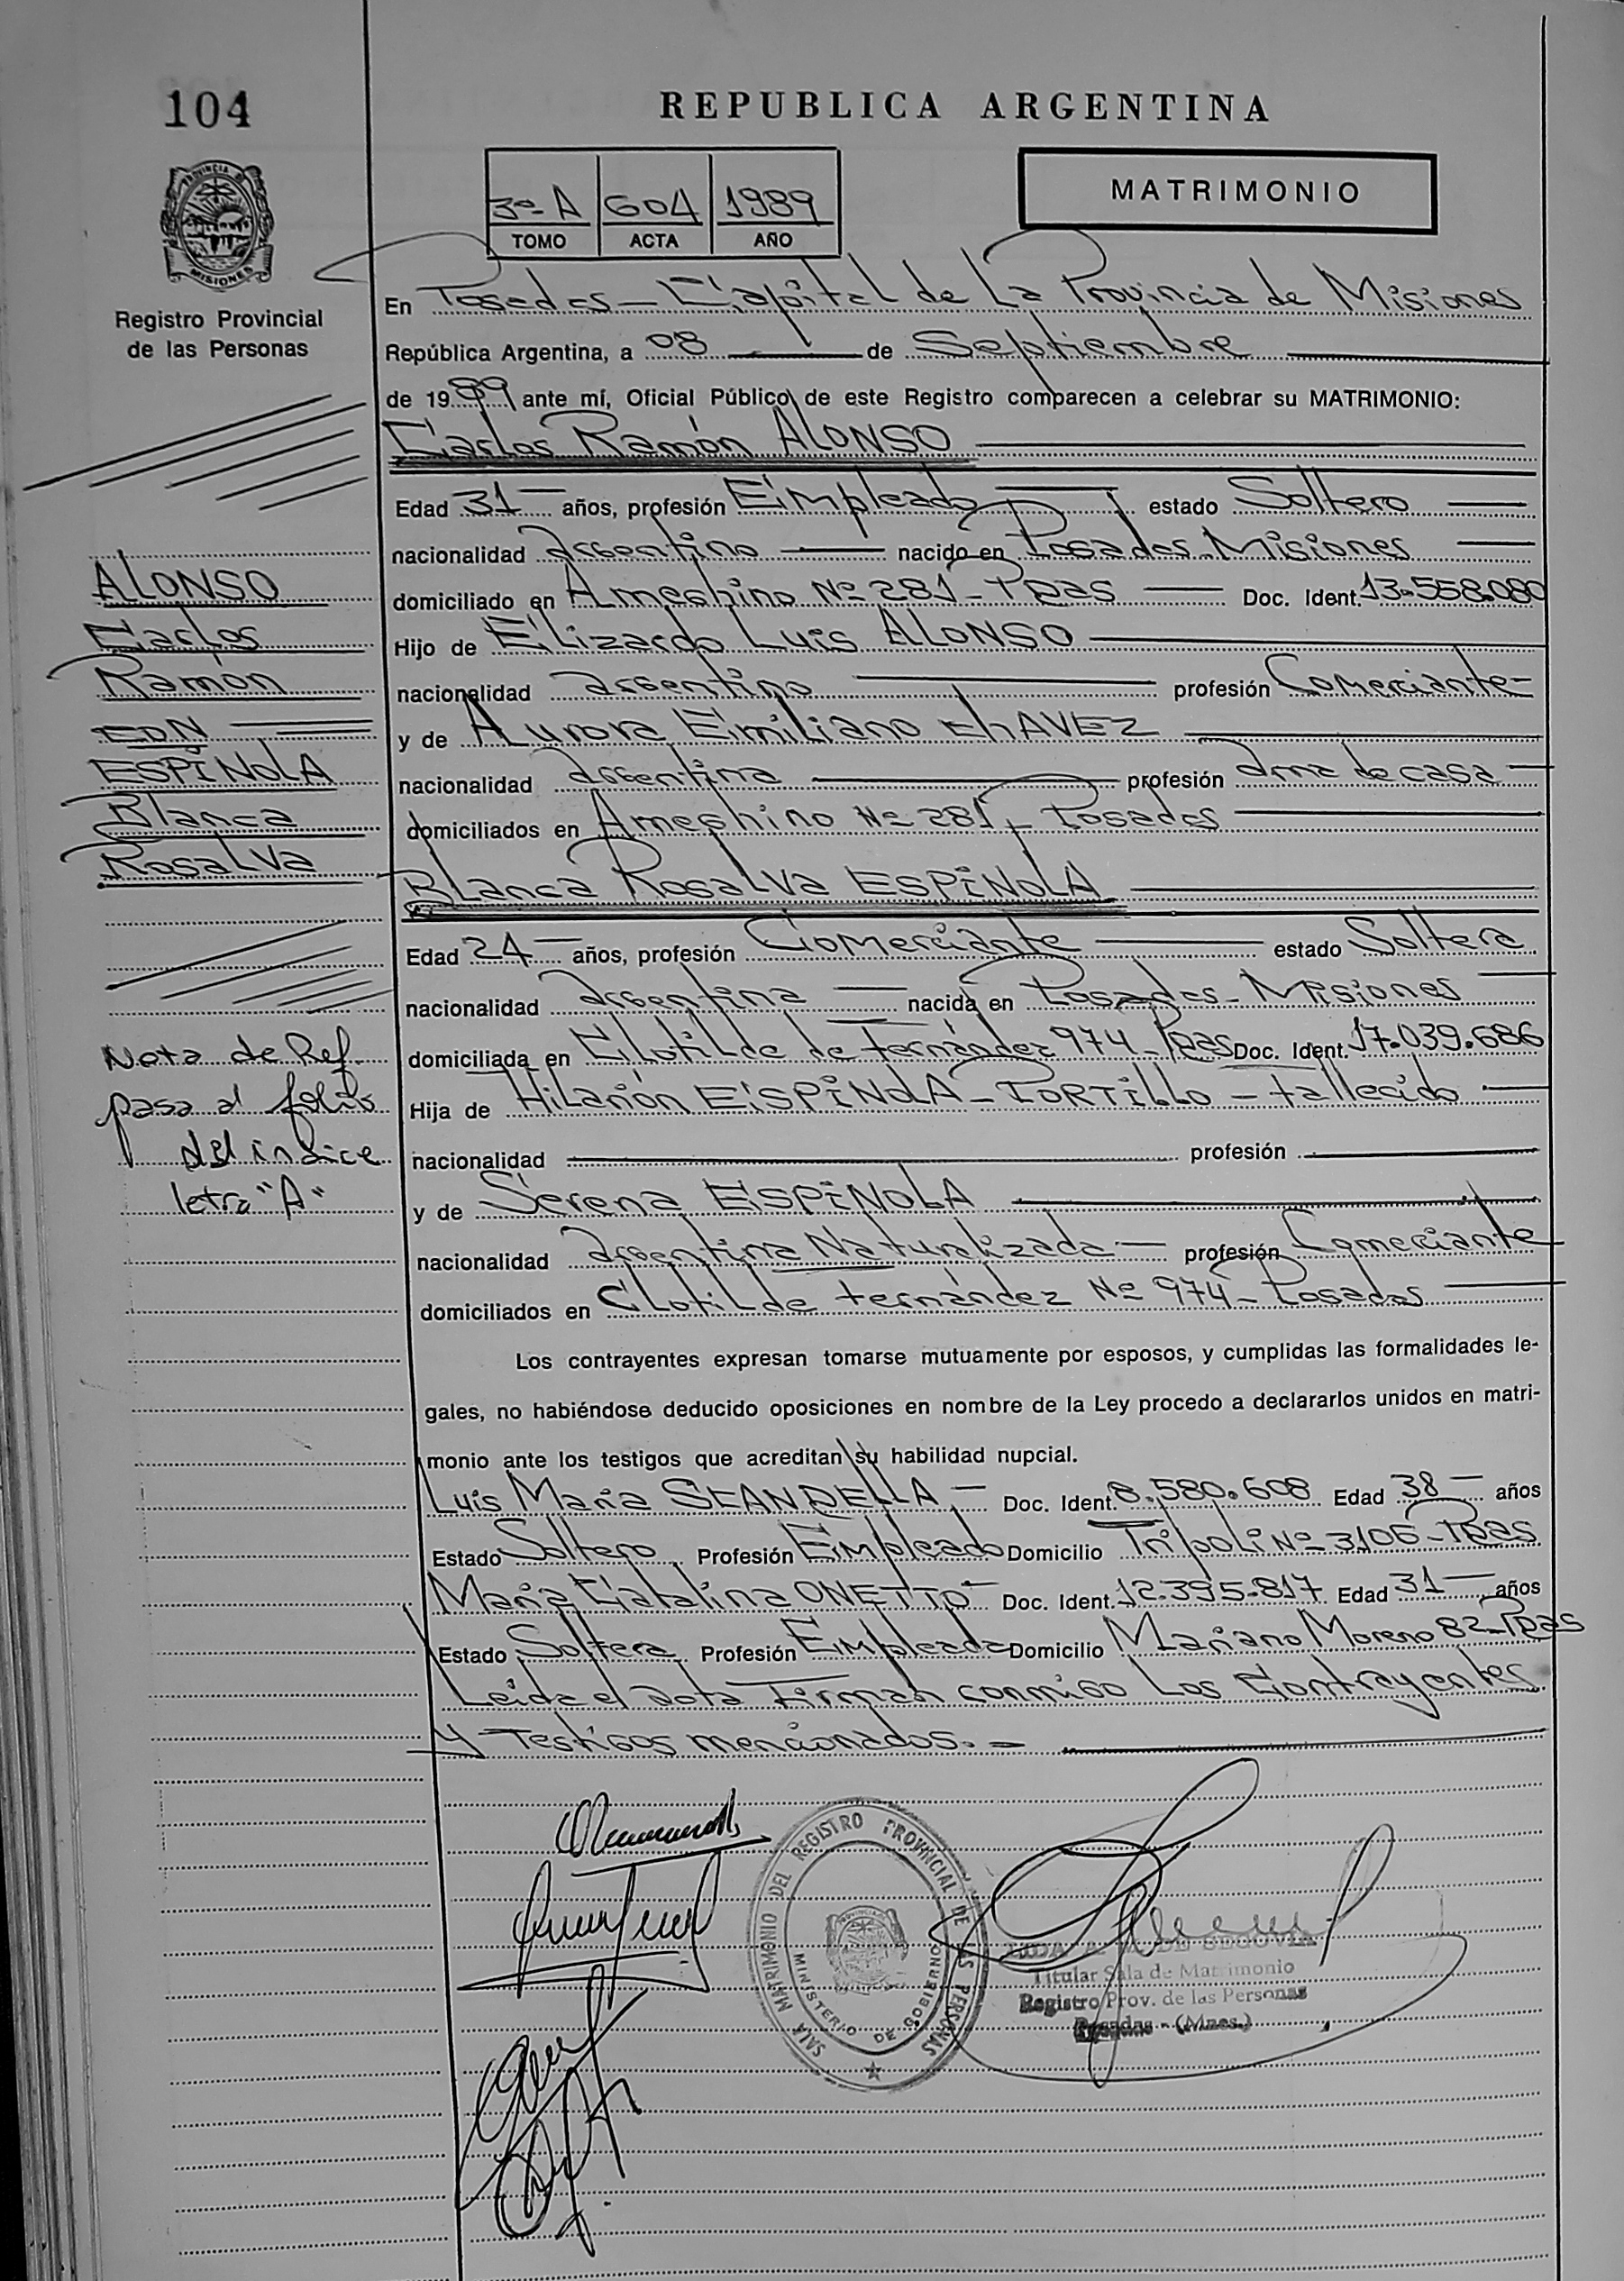 104
REPUBLICA ARGENTINA
PROVINCIA DE
MISIONES
3º A 604 1989
TOMO ACTA AÑO
MATRIMONIO
Registro Provincial
de las Personas
En Posadas - Capital de La Provincia de Misiones
República Argentina, a 08 de Septiembre
de 1989 ante mí, Oficial Público de este Registro comparecen a celebrar su MATRIMONIO:
Carlos Ramón ALONSO
Edad 31 años, profesión Empleado estado Soltero
nacionalidad argentino nacido en Posadas - Misiones
domiciliado en Ameghino Nº 281 - Pdas Doc. Ident. 13.558.080
Hijo de Elizardo Luis ALONSO
nacionalidad argentino profesión Comerciante
y de Aurora Emiliano ChAVEZ
nacionalidad argentina profesión ama de casa
domiciliados en Ameghino Nº 281 - Posadas
Blanca Rosalva ESPíNOLA
Edad 24 años, profesión Comerciante estado Soltera
nacionalidad argentina nacida en Posadas - Misiones
domiciliada en Clotilde de Fernández 974 - Pdas Doc. Ident. 17.039.686
Hija de Hilarión ESPíNOLA - PORTILLO - fallecido
nacionalidad profesión
y de Serena ESPíNOLA
nacionalidad argentina Naturalizada profesión Comerciante
domiciliados en Clotilde Fernández Nº 974 - Posadas
ALONSO
Carlos
Ramón
CON
ESPíNOLA
Blanca
Rosalva
Nota de Ref.
pasa al folio
del indice
letra "A"
Los contrayentes expresan tomarse mutuamente por esposos, y cumplidas las formalidades le-
gales, no habiéndose deducido oposiciones en nombre de la Ley procedo a declararlos unidos en matri-
monio ante los testigos que acreditan su habilidad nupcial.
Luis María SCANDELLA Doc. Ident. 8.580.608 Edad 38 años
Estado Soltero Profesión Empleado Domicilio Tripoli Nº 3106 - Pdas
María Catalina ONETTO Doc. Ident. 12.395.817 Edad 31 años
Estado Soltera Profesión Empleada Domicilio Mariano Moreno 82 - Pdas
Leída el acta Firman conmigo Los Contrayentes
y Testigos mencionados. -
SALA MATRIMONIO DEL REGISTRO PROVINCIAL DE LAS PERSONAS
MINISTERIO DE GOBIERNO
DE SEGOVIA
Titular Sala de Matrimonio
Registro Prov. de las Personas
Posadas - (Mnes.)